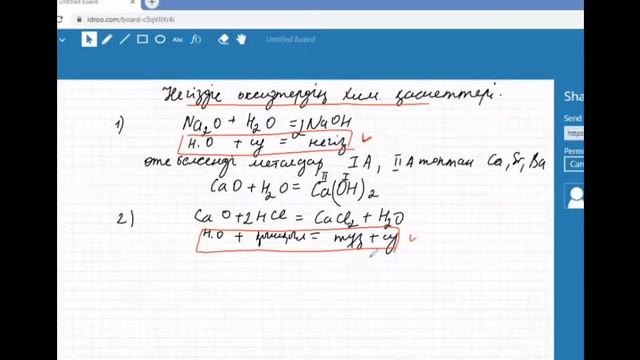 Untitled board
idroo.com/board-c3qVIlXr4i
Abc f(x) Untitled board
Негіздік оксидтердің хим. қасиеттері.
1) Na₂O + H₂O = 2NaOH
Н.О + су = негіз
өте белсенді металдар I A, II A топтан Ca, Sr, Ba
CaO + H₂O = Ca(OH)₂
II I
2) CaO + 2HCl = CaCl₂ + H₂O
Н.О + қышқыл = тұз + су
Sha
Send
https
Permi
Can